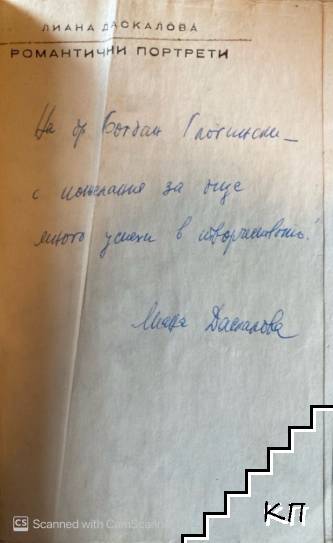 ЛИАНА ДАСКАЛОВА
РОМАНТИЧНИ ПОРТРЕТИ
На др Богдан
с пожелания за още
много успехи в творчеството!
Лиана Даскалова
CS Scanned with CamScanner
КП